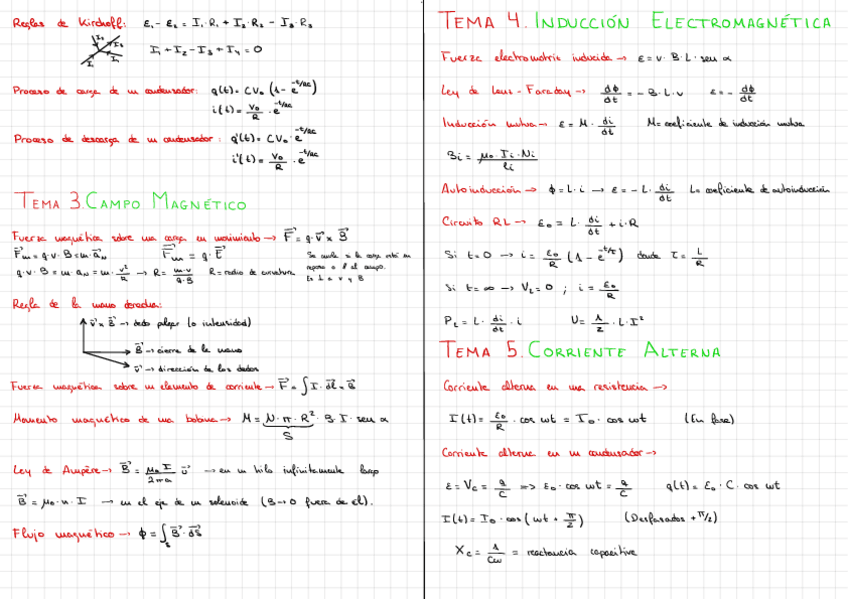 Reglas de Kirchoff: ε₁ - ε₂ = I₁·R₁ + I₂·R₂ - I₃·R₃
I₁ + I₂ - I₃ + I₄ = 0
Proceso de carga de un condensador: q(t) = CV₀ (1 - e^(-t/RC))
i(t) = V₀/R · e^(-t/RC)
Proceso de descarga de un condensador: q'(t) = CV₀ · e^(-t/RC)
i'(t) = V₀/R · e^(-t/RC)
TEMA 3. CAMPO MAGNÉTICO
Fuerza magnética sobre una carga en movimiento → F = q·v × B
Fm = q·v·B = m·aₙ Fm = q·E
q·v·B = m·aₙ = m·v²/R → R = m·v/q·B R = radio de curvatura
Se anula si la carga está en
reposo o ∥ al campo.
Regla de la mano derecha:
v × B → dedo pulgar (o intensidad)
B → cierre de la mano
v → dirección de los dedos
Fuerza magnética sobre un elemento de corriente → F = ∫ I·dl × B
Momento magnético de una bobina → M = N·π·R²·B·I·sen α
S
Ley de Ampère → B = μ₀ I/2πa u → en un hilo infinitamente largo
B = μ₀·n·I → en el eje de un solenoide (B→0 fuera de él).
Flujo magnético → ϕ = ∫s B·ds
TEMA 4. INDUCCIÓN ELECTROMAGNÉTICA
Fuerza electromotriz inducida → ε = v·B·L·sen α
Ley de Lenz-Faraday → dϕ/dt = -B·L·v ε = -dϕ/dt
Inducción mutua → ε = M·di/dt M = coeficiente de inducción mutua
Bi = μ₀·Ii·Ni/li
Autoinducción → ϕ = L·i → ε = -L·di/dt L = coeficiente de autoinducción
Circuito RL → ε₀ = L·di/dt + i·R
Si t=0 → i = ε₀/R (1 - e^(-t/τ)) donde τ = L/R
Si t=∞ → VL = 0 ; i = ε₀/R
PL = L·di/dt·i U = 1/2·L·I²
TEMA 5. CORRIENTE ALTERNA
Corriente alterna en una resistencia →
I(t) = ε₀/R · cos ωt = I₀ · cos ωt (En fase)
Corriente alterna en un condensador →
ε = Vc = q/C => ε₀·cos ωt = q/C q(t) = ε₀·C·cos ωt
I(t) = I₀·cos(ωt + π/2) (Desfasados + π/2)
Xc = 1/Cω = reactancia capacitiva